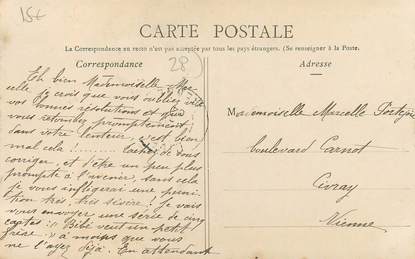 15€
CARTE POSTALE
La Correspondance au recto n'est pas acceptée par tous les pays étrangers. (Se renseigner à la Poste.
Correspondance
Adresse
28
Eh bien Mademoiselle Mar-
celle je crois que vous oubliez vite
vos bonnes résolutions et que
vous retombez promptement
dans votre lenteur, c'est bien
mal cela!...... tachez de vous
corriger, et d'être un peu plus
prompte à l'avenir, sans cela
je vous infligerai une puni-
tion très, très sévère: je vais
vous envoyer une série de cinq
cartes: "Bébé veut un petit
frère" à moins que vous
ne l'ayez déjà. En attendant
Mademoiselle Marcelle
boulevard Carnot
Civray
Vienne